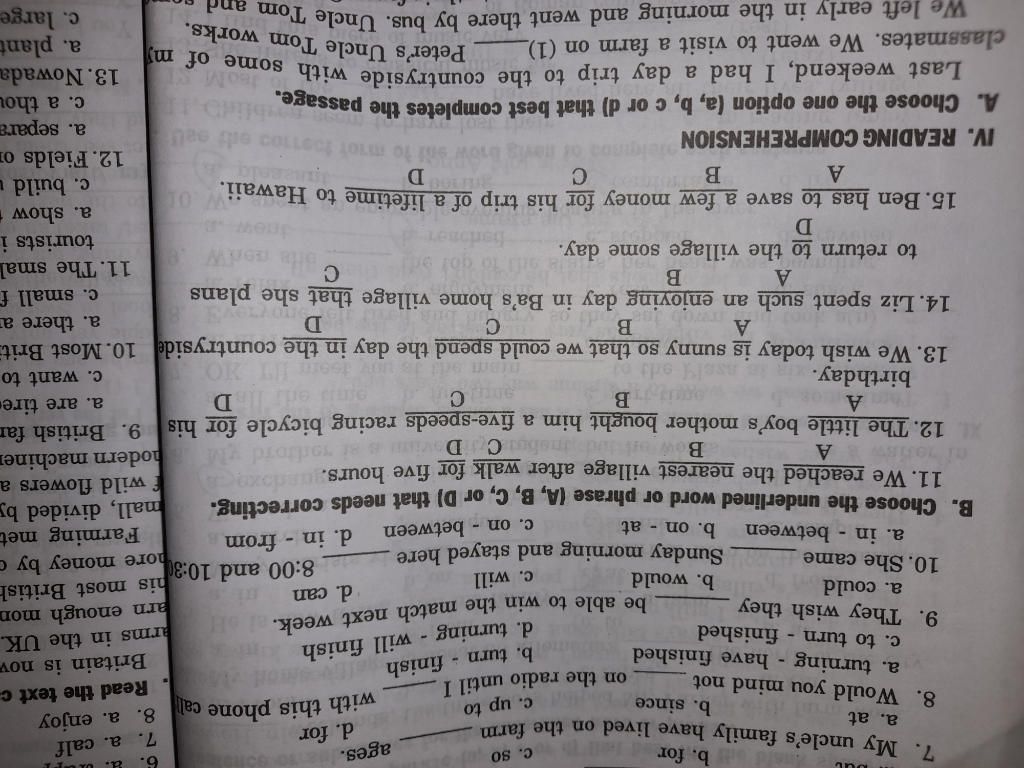 but b. for c. so
7. My uncle's family have lived on the farm ______ ages.
a. at b. since c. up to d. for
8. Would you mind not ______ on the radio until I ______ with this phone call
a. turning - have finished b. turn - finish
c. to turn - finished d. turning - will finish
9. They wish they ______ be able to win the match next week.
a. could b. would c. will d. can
10. She came ______ Sunday morning and stayed here ______ 8:00 and 10:30
a. in - between b. on - at c. on - between d. in - from
B. Choose the underlined word or phrase (A, B, C, or D) that needs correcting.
11. We reached the nearest village after walk for five hours.
A B C D
12. The little boy's mother bought him a five-speeds racing bicycle for his
A B C D
birthday.
13. We wish today is sunny so that we could spend the day in the countryside
A B C D
14. Liz spent such an enjoying day in Ba's home village that she plans
A B C
to return to the village some day.
D
15. Ben has to save a few money for his trip of a lifetime to Hawaii.
A B C D
IV. READING COMPREHENSION
A. Choose the one option (a, b, c or d) that best completes the passage.
Last weekend, I had a day trip to the countryside with some of my
classmates. We went to visit a farm on (1) ______ Peter's Uncle Tom works.
We left early in the morning and went there by bus. Uncle Tom and
7. a. calf
8. a. enjoy
. Read the text
Britain is now
arms in the UK.
arn enough mon
his most British
more money by
Farming met
mall, divided by
f wild flowers a
modern machiner
9. British far
a. are tired
c. want to
10. Most Briti
a. there ar
c. small f
11. The smal
tourists i
a. show
c. build
12. Fields or
a. separa
c. a thou
13. Nowada
a. plant
c. large